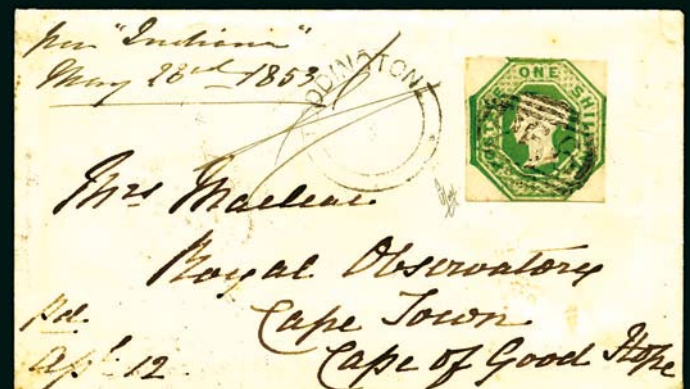 per "Indiana"
May 23rd 1853
DDINGTON
POSTAGE ONE SHILLING
Mrs Maclear
Royal Observatory
Cape Town
Cape of Good Hope
Pd.
Apl. 12.